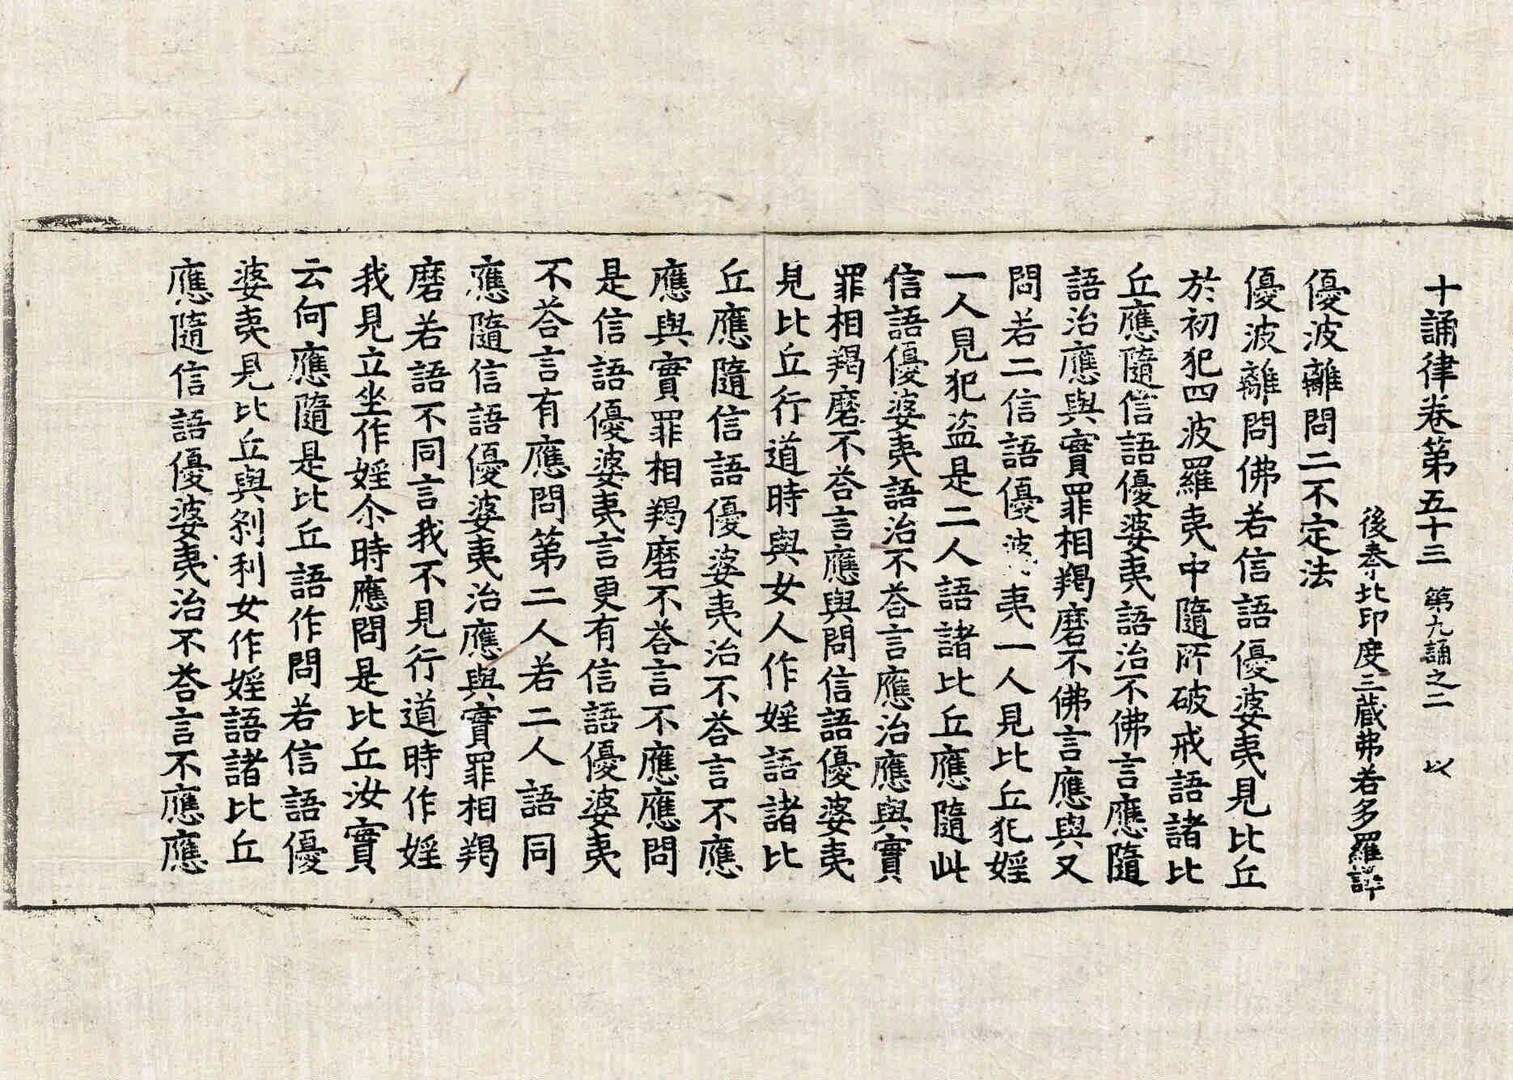 十誦律卷第五十三 第九誦之二 以
後秦北印度三藏弗若多羅譯
優波離問二不定法
優波離問佛若信語優婆夷見比丘
於初犯四波羅夷中隨所破戒語諸比
丘應隨信語優婆夷語治不佛言應隨
語治應與實罪相羯磨不佛言應與又
問若二信語優波夷一人見比丘犯婬
一人見犯盗是二人語諸比丘應隨此
信語優婆夷語治不荅言應治應與實
罪相羯磨不荅言應與問信語優婆夷
見比丘行道時與女人作婬語諸比
丘應隨信語優婆夷治不荅言不應
應與實罪相羯磨不荅言不應應問
是信語優婆夷言更有信語優婆夷
不荅言有應問第二人若二人語同
應隨信語優婆夷治應與實罪相羯
磨若語不同言我不見行道時作婬
我見立坐作婬尒時應問是比丘汝實
云何應隨是比丘語作問若信語優
婆夷見比丘與剎利女作婬語諸比丘
應隨信語優婆夷治不荅言不應應